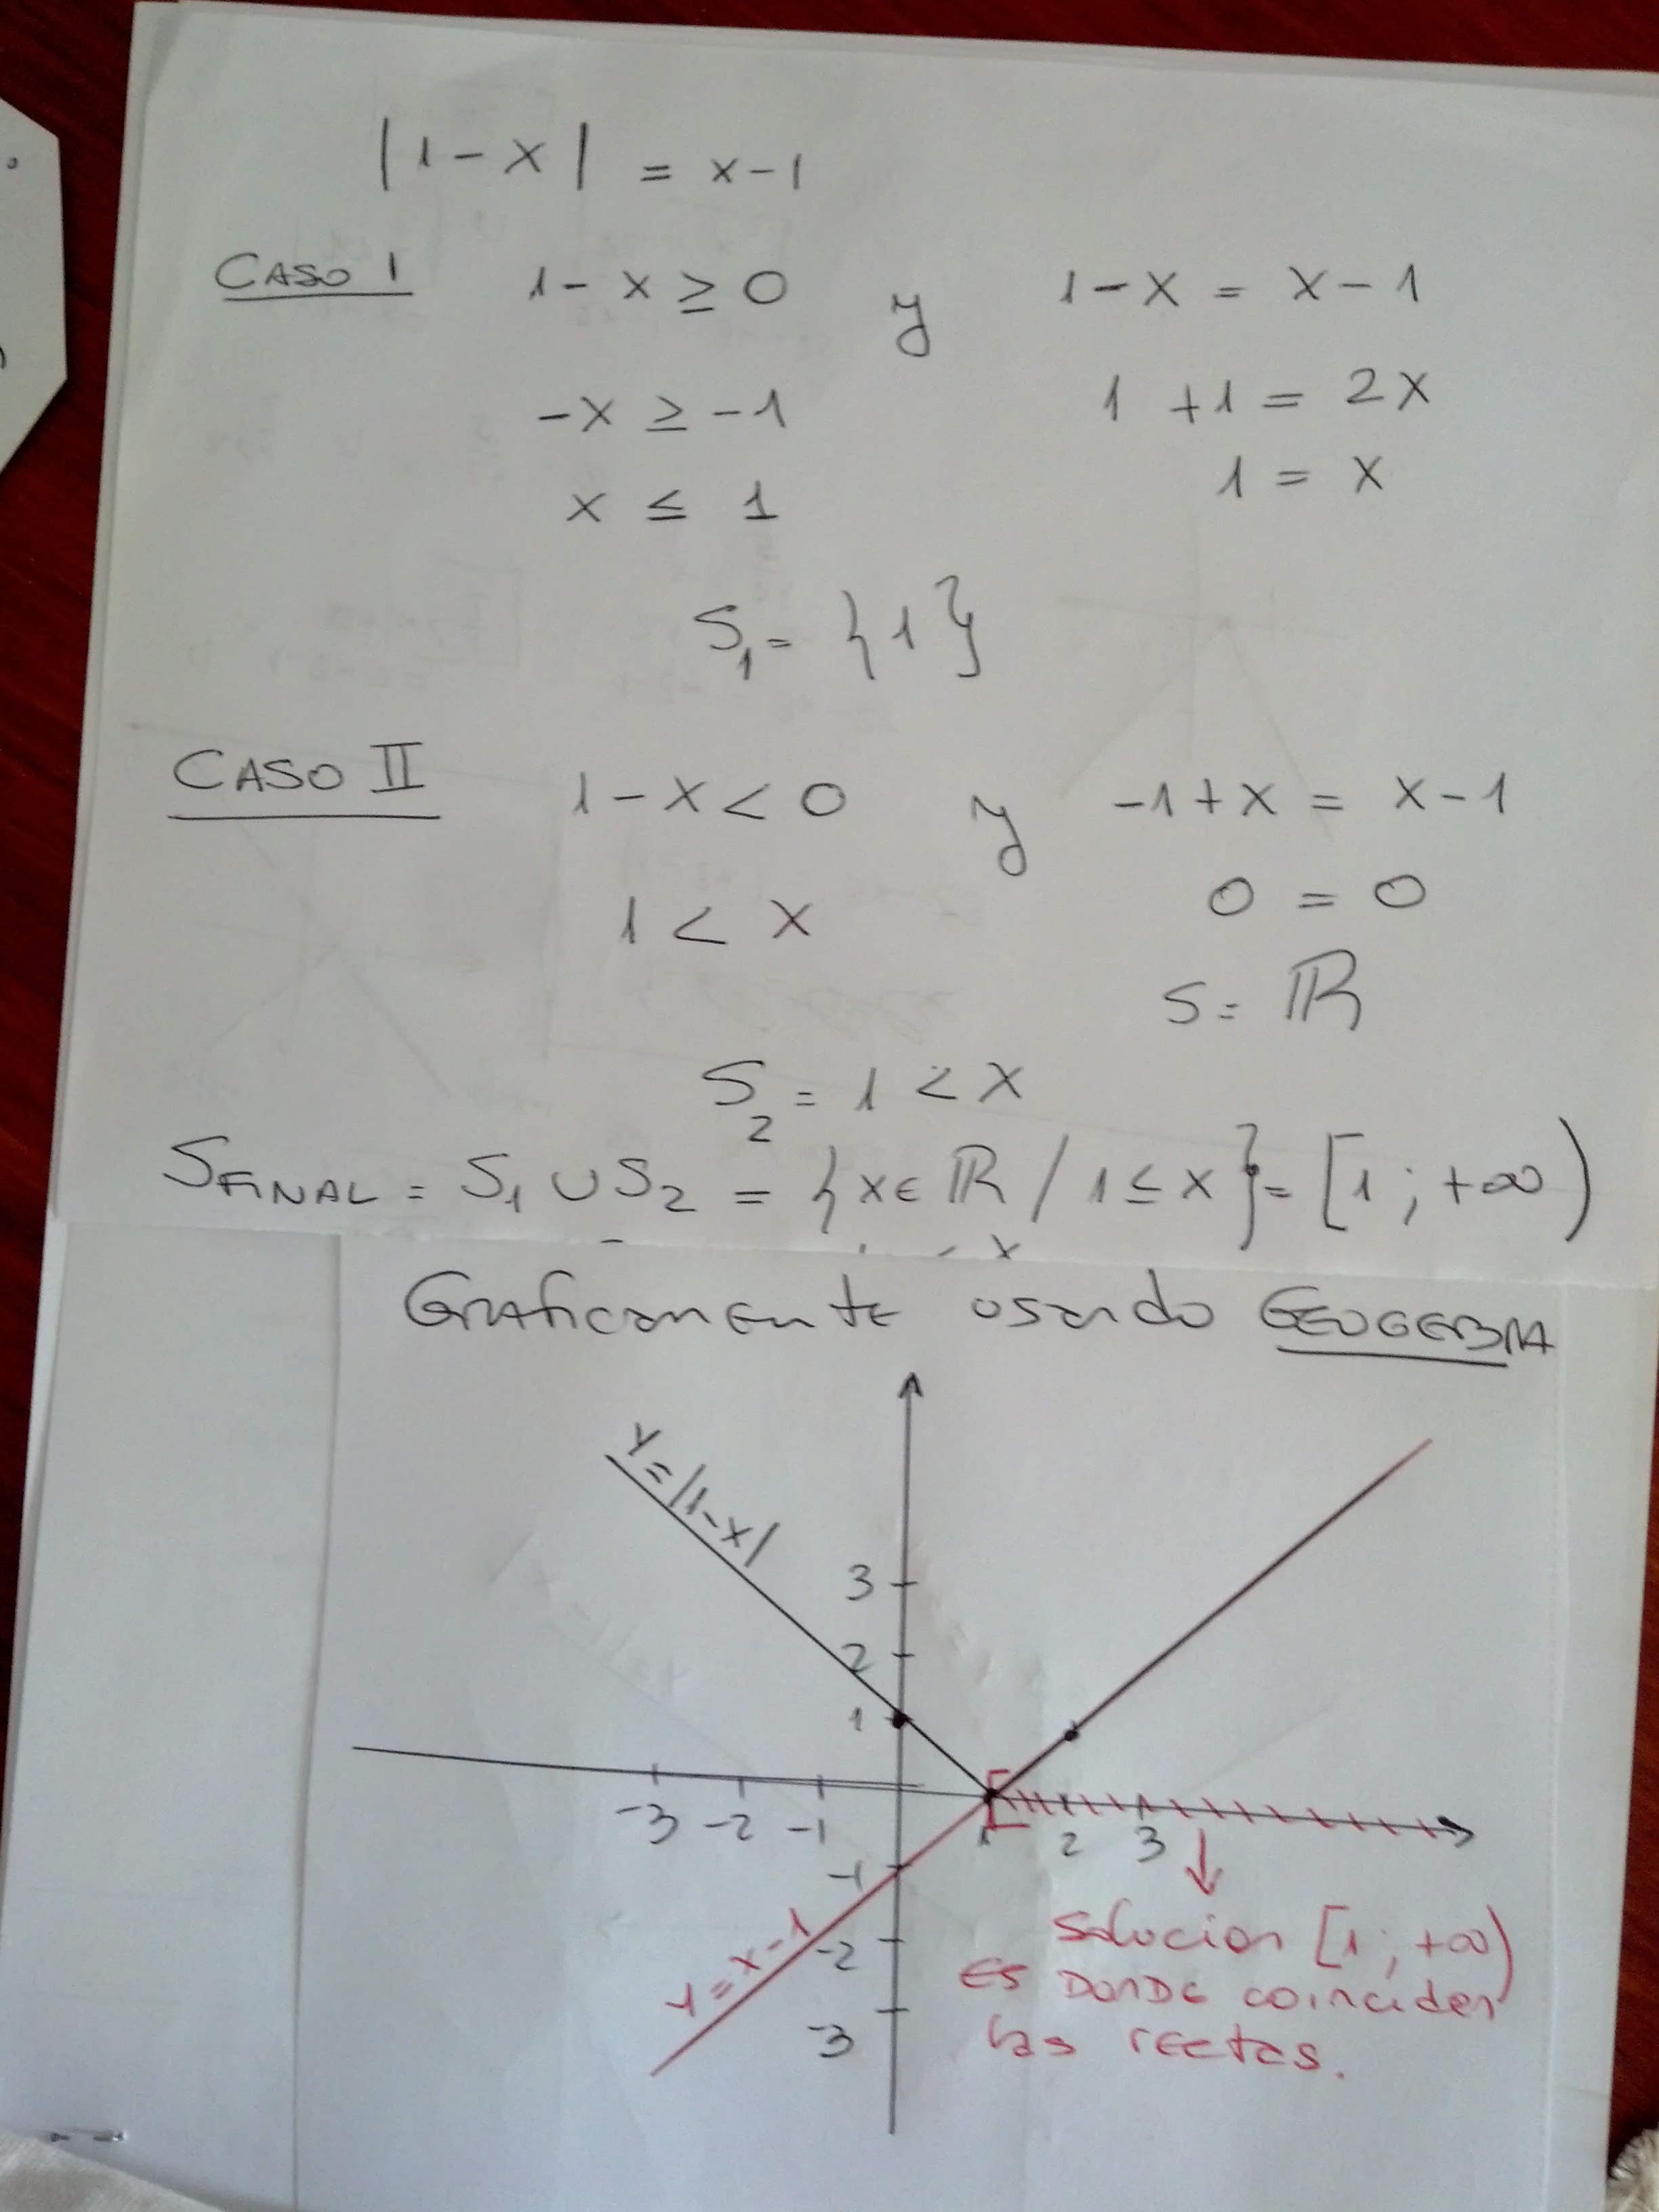 |1-x| = x-1
CASO I 1-x ≥ 0 y 1-x = x-1
-x ≥ -1 1 +1 = 2x
x ≤ 1 1 = x
S₁ = {1}
CASO II 1-x < 0 y -1+x = x-1
1 < x 0 = 0
S = ℝ
S₂ = 1 < x
SFINAL = S₁ ∪ S₂ = {x ∈ ℝ / 1 ≤ x} = [1 ; +∞)
Graficamente usando GEOGEBRA
Y=|1-x|
3
2
1
-3 -2 -1 1 2 3
-1
-2
-3
Y = x-1
Solucion [1 ; +∞)
ES DONDE coinciden
las rectas.